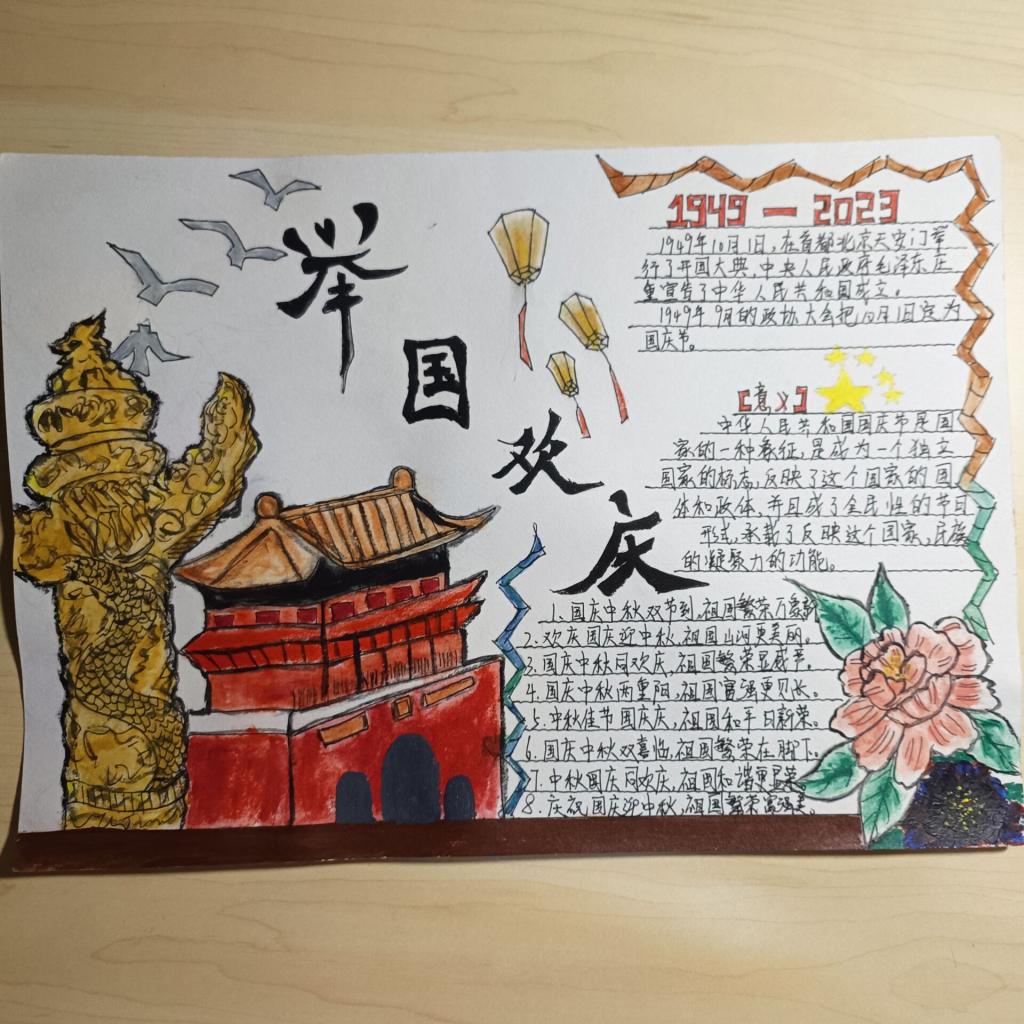 举国欢庆
1949—2023
1949年10月1日,在首都北京天安门举
行了开国大典,中央人民政府毛泽东庄
重宣告了中华人民共和国成立。
1949年9月的政协大会把10月1日定为
国庆节。
【意义】
中华人民共和国国庆节是国
家的一种象征,是成为一个独立
国家的标志,反映了这个国家的国
体和政体,并且成了全民性的节日
形式,承载了反映这个国家、民族
的凝聚力的功能。
1、国庆中秋双节到,祖国繁荣万象新
2、欢庆国庆迎中秋,祖国山河更美丽。
3、国庆中秋同欢庆,祖国繁荣显盛华。
4、国庆中秋两重阳,祖国富强更见长。
5、中秋佳节国庆庆,祖国和平日新荣。
6、国庆中秋双喜临,祖国繁荣在脚下。
7、中秋国庆同欢庆,祖国和谐更显荣。
8、庆祝国庆迎中秋,祖国繁荣富强美。